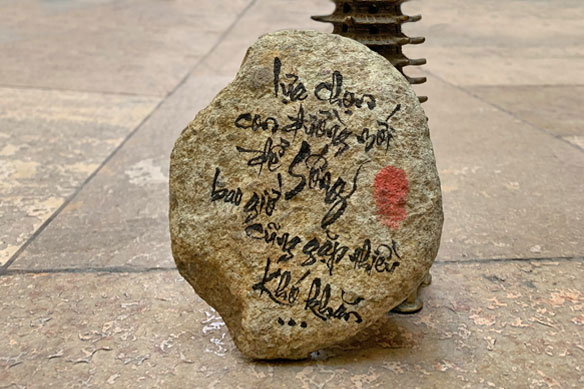 lựa chọn
con đường mới
để sống
bao giờ
cũng gặp nhiều
khó khăn
...